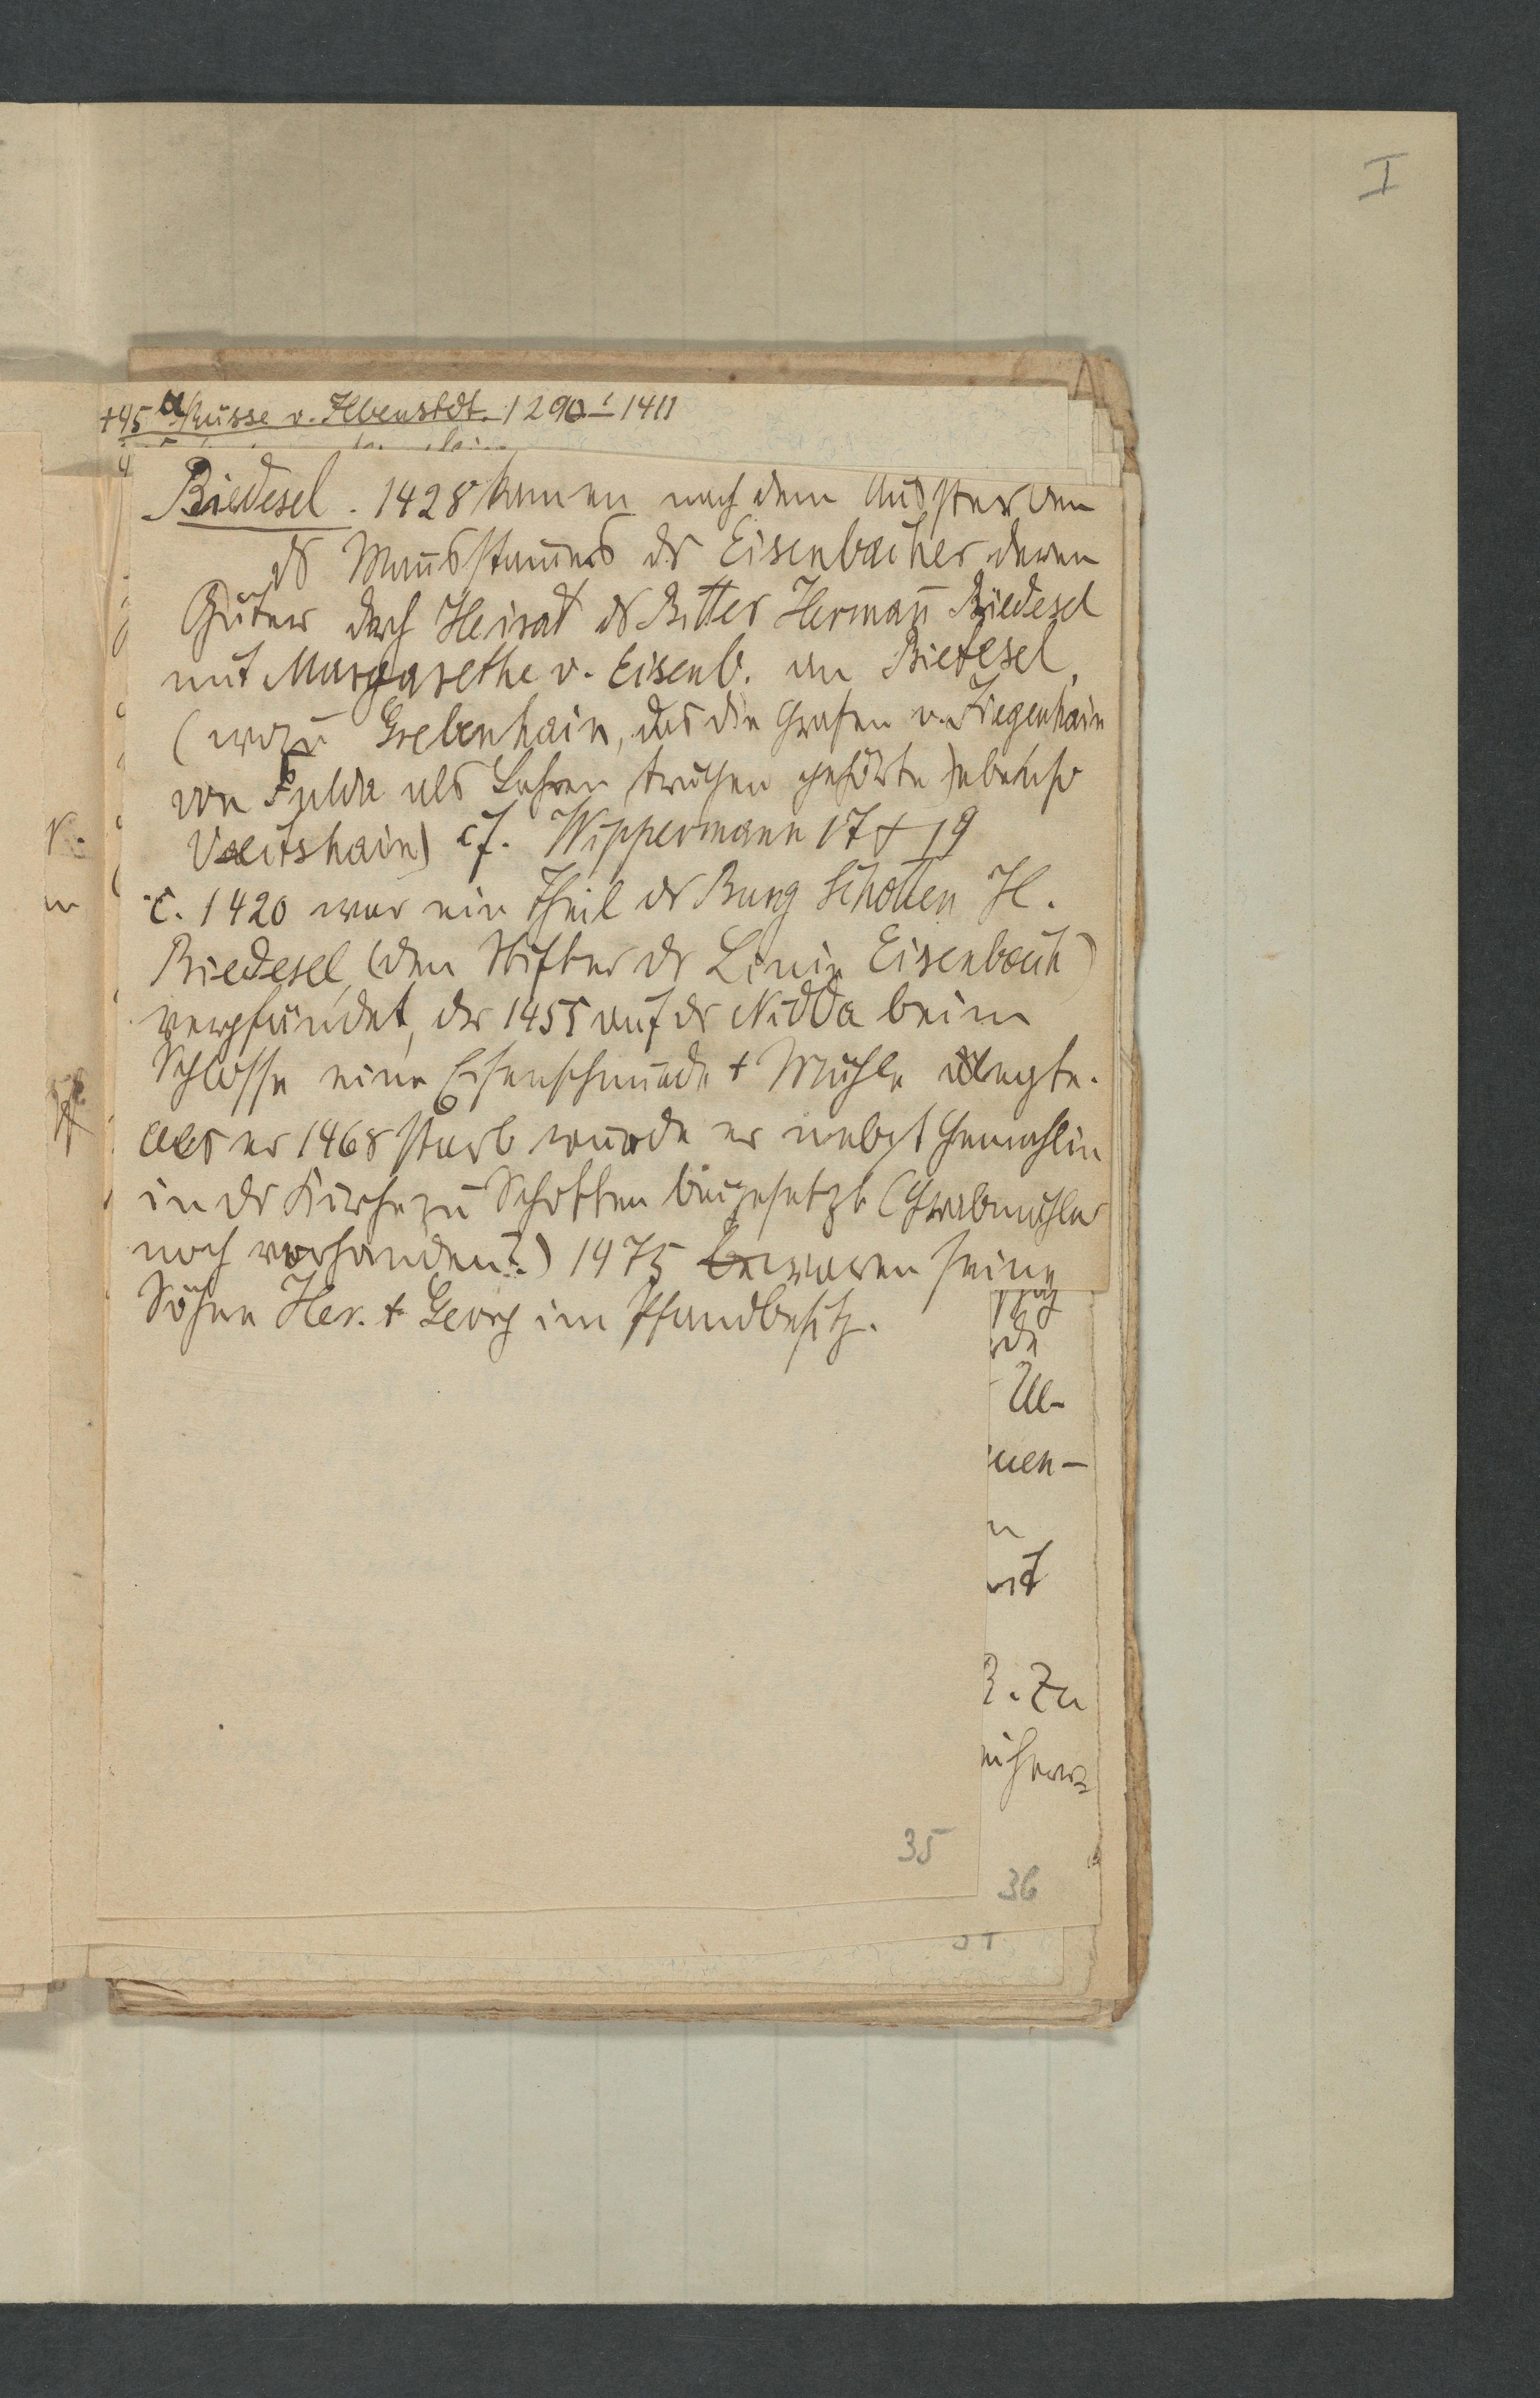 I
+45 a Russe v. Ilbenstdt. 1290 - 1411
Riedesel. 1428 kamen nach dem Aussterben
ds Man̄sstam̄es dr Eisenbacher deren
Güter dch Heirat ds Ritter Herman̄ Riedesel
mit Margarethe v. Eisenb. an Riedesel,
(wozu Grebenhain, das die Grafen v. Ziegenhain
von Fulda als Lehen trugen gehörte) ebenso
Vaitshain) cf. Wippermann 17 + 19
c. 1420 war ein Theil dr Burg Schotten H.
Riedesel, (dem Stifter dr Linie Eisenbach)
verpfändet, der 1455 auf dr Nidda beim
Schlosse eine Eisenschmiede + Mühle anlegte.
Als er 1468 starb wurde er nebst Gemahlin
in dr Kirche zu Schotten beigesetzt (Grabmäler
noch vorhanden?) 1475 waren seine
Söhne Her. + Georg im Pfandbesitz.
rde
Ul-
uen-
n
mit
R. Zu
35
36